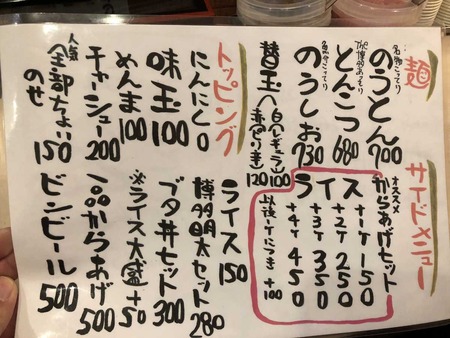 麺
名物こってり
のうとん 700
The博多あっさり
とんこつ 680
魚介こってり
のうしお 730
替玉(白レギュラー)100
(赤ぺりキモ)120
サイドメニュー
オススメ
からあげセット
ライス
+1ケ 150
+2ケ 250
+3ケ 350
+4ケ 450
以後1ケにつき +100
トッピング
にんにく 0
味玉 100
めんま 100
チャーシュー 200
人気
全部ちょい
のせ 150
ライス 150
博多明太セット 280
ブタ丼セット 300
※ライス大盛 +50
一品からあげ 500
ビンビール 500